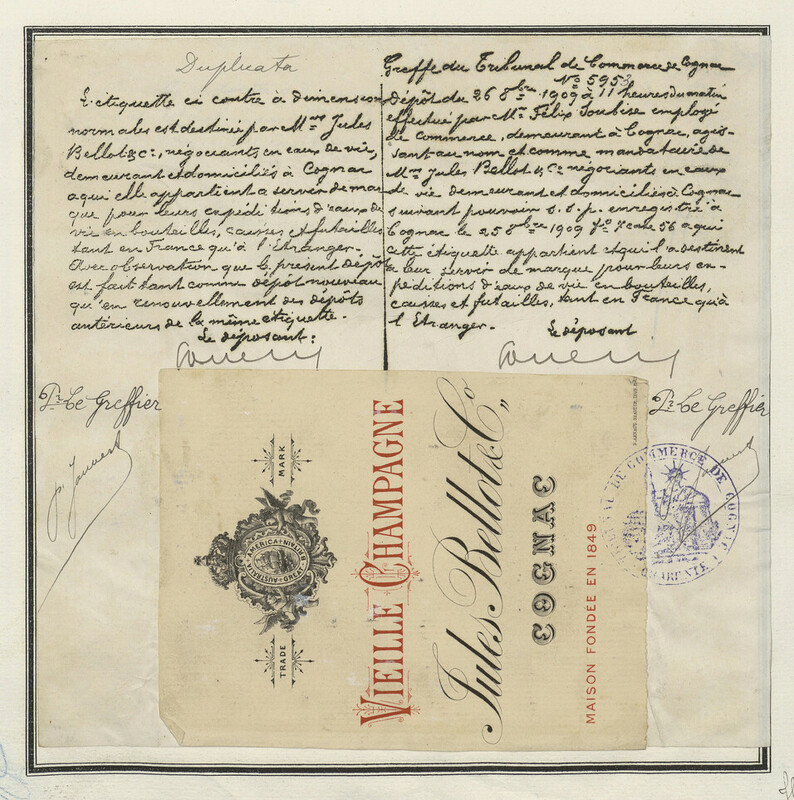 Duplicata
L'étiquette ci contre à dimension
normales est destinée par Mrs Jules
Bellot & Cie, négociants en eaux de vie,
demeurant et domiciliés à Cognac
a qui elle appartient a servir de mar
que pour leurs expéditions d'eaux de
vie en bouteilles, caisses et futailles
tant en France qu'à l'Etranger.
Avec observation que le présent dépôt
est fait tant comme dépôt nouveau
qu'en renouvellement des dépôts
antérieurs de la même étiquette.
Le déposant:
Pr Le Greffier
Greffe du Tribunal de Commerce de Cognac
No 5953
Dépôt du 26 8bre 1909 à 11 heures du matin
effectué par Mr Félix Soubise employé
de Commerce, demeurant à Cognac, agis-
sant au nom et comme mandataire de
Mrs Jules Bellot & Cie négociants en eaux
de vie demeurant et domiciliés à Cognac
suivant pouvoir s.s.p. enregistré à
Cognac le 25 8bre 1909 Fo 7 case 56 a qui
cette étiquette appartient et qui l'a destinent
a leur servir de marque pour leurs ex-
péditions d'eaux de vie en bouteilles,
caisses et futailles, tant en France qu'à
l'Etranger.
Le déposant
Pr Le Greffier
TRADE MARK
AMERICA INDIA AUSTRALIA
VIEILLE CHAMPAGNE
Jules Bellot & Co
COGNAC
MAISON FONDÉE EN 1849
TRIBUNAL DE COMMERCE DE COGNAC
CHARENTE